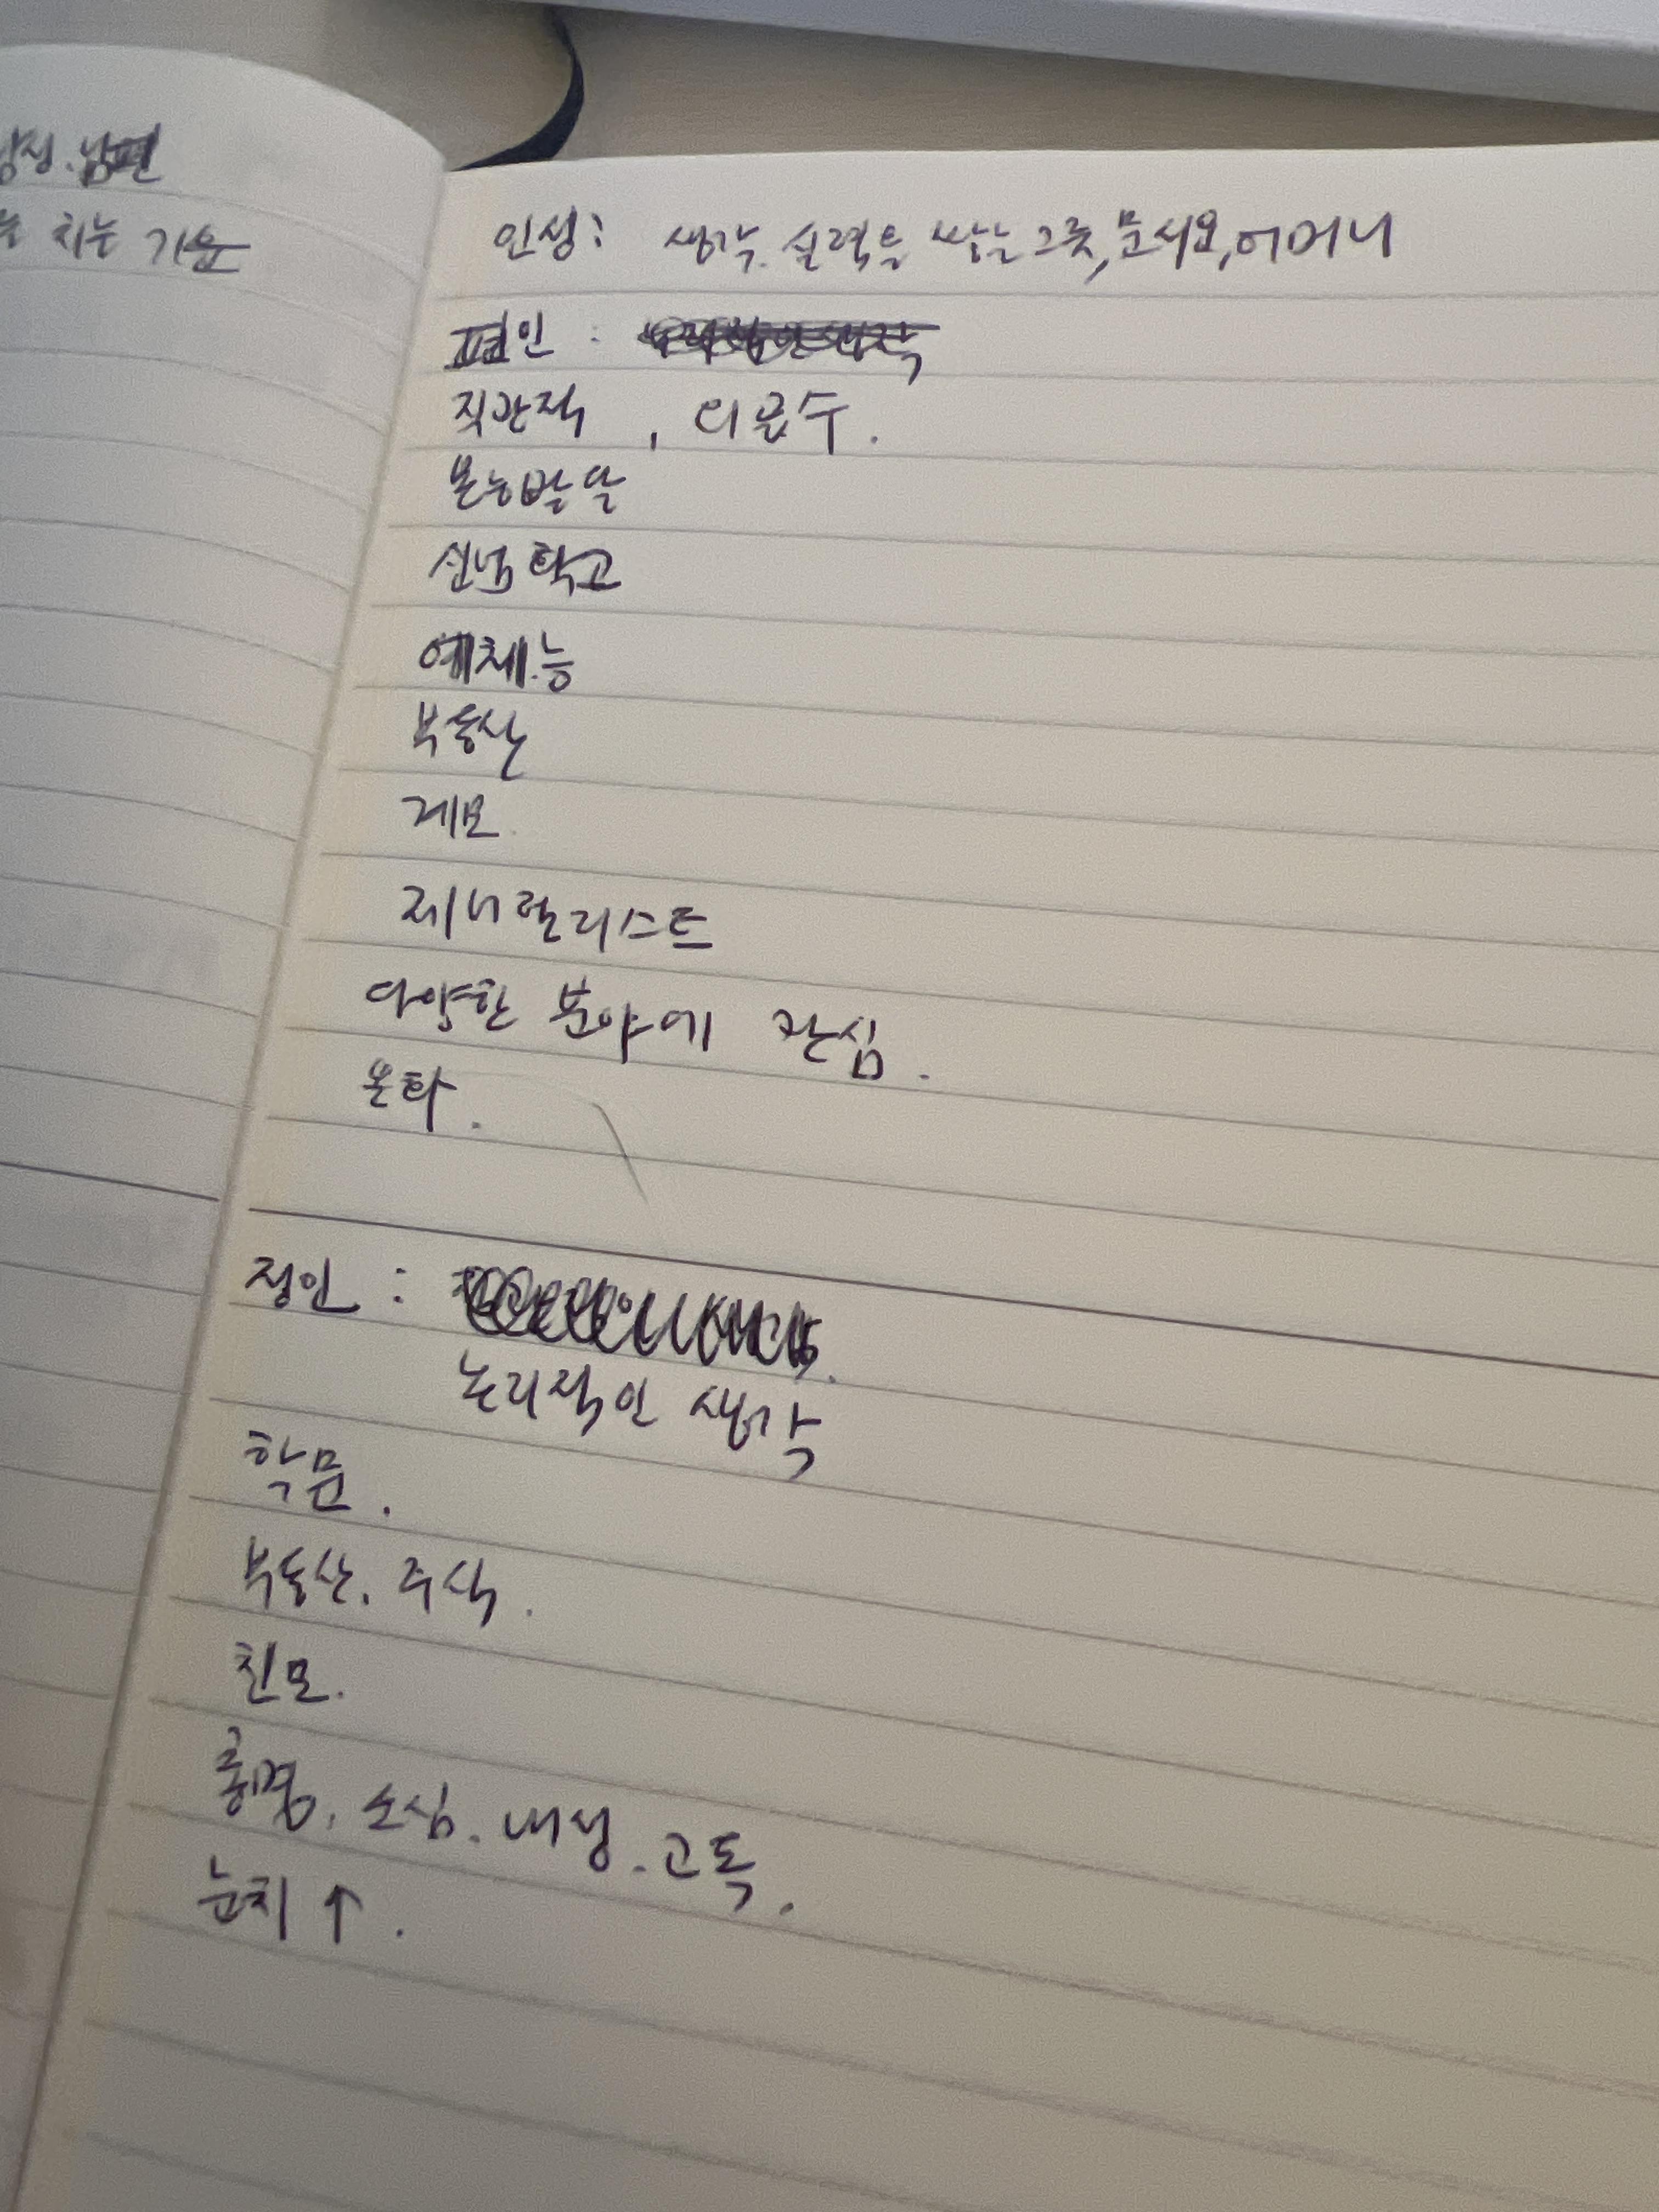 남성. 남편
치는 기운
인성: 생각. 실력을 쌓는 그릇, 문서요, 어머니
편인 :
직관적 ,
본능발달
신념 확고
예체능
부동산
계모
제너럴리스트
다양한 분야에 관심.
문화.
정인 :
논리적인 생각
학문.
부동산. 주식.
친모.
소심. 내성. 고독.
눈치 ↑.